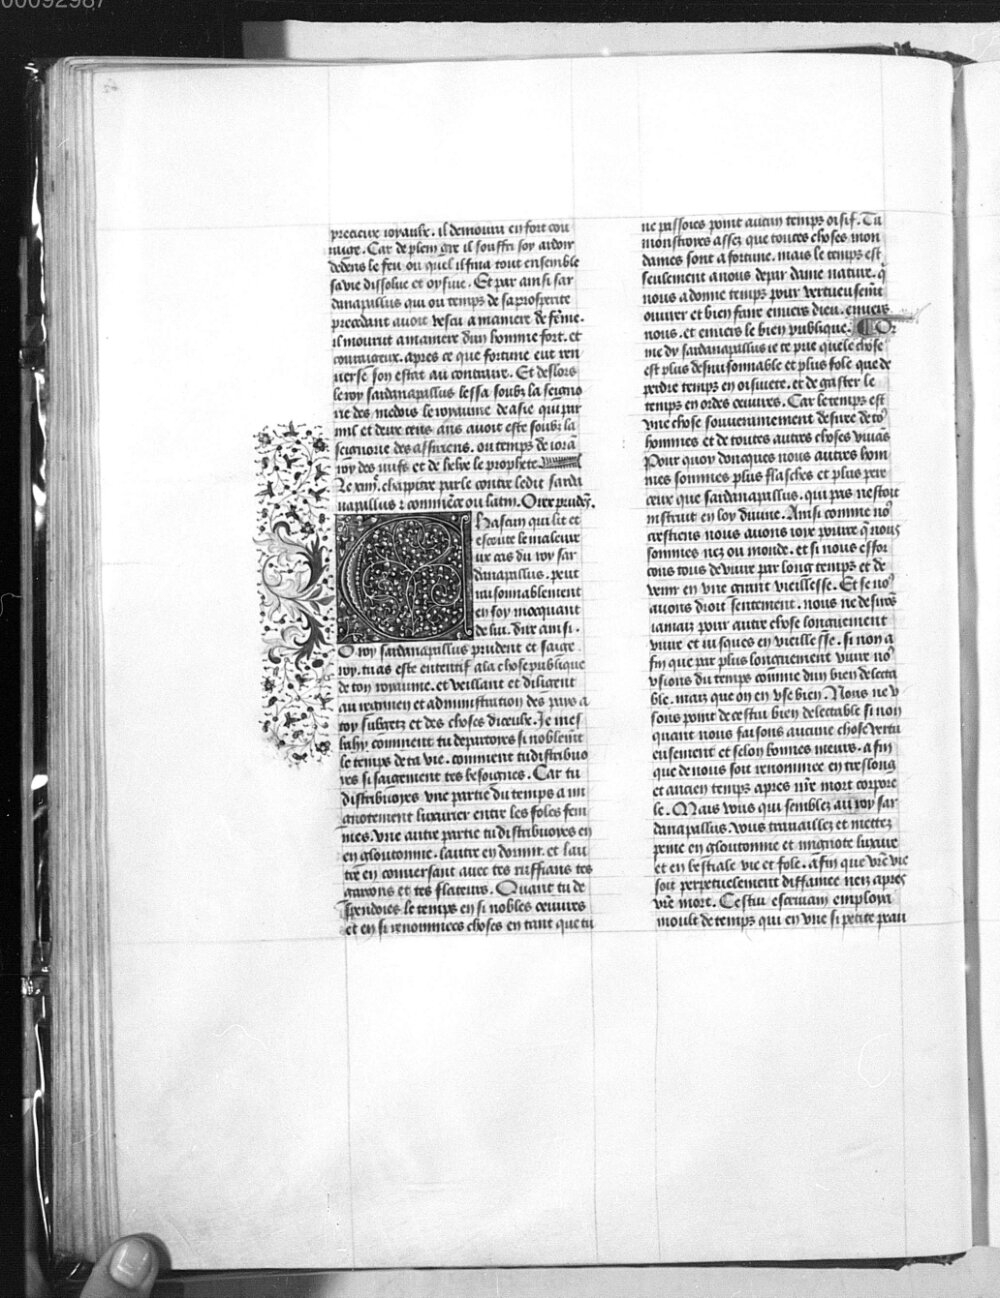 00092987
precieux ioyaulx. il demoura en fort cou
rage. Car de plein gre il souffri soy ardoir
dedens le feu ou quel il fina tout ensemble
sa vie dissolue et oysiue. Et par ainsi sar
danapallus qui ou temps de sa prosperite
precedant auoit vescu a maniere de fēme.
il mourut a maniere dun homme fort. et
couraigeux. apres ce que fortune eut ren
uerse son estat au contraire. Et deslors
le roy sardanapallus lessa soubz la seigno
rie des medois le royaume de asie qui par
mil et deux cens ans auoit este soubz la
seigneurie des assiriens. ou temps de iorā
roy des iuifs et de helye le prophete
Le xiiij. chappitre parle contre ledit sarda
napallus ⁊ commēce ou latin. O rex prudēs.
Chascun qui lit et
escoute le maleur
ux cas du roy sar
danapallus. peut
raisonnablement
en soy mocquant
de lui. dire ainsi.
O roy sardanapallus prudent et saige
roy. tu as este ententif a la chose publique
de ton royaume. et veillant et diligent
au regimen et administration des pays a
toy subgetz et des choses diceulx. Je mes
bahy comment tu departoies si noblemēt
le temps de ta vie. comment tu distribuo
ies si saigement tes besoignes. Car tu
distribuoyes vne partie du temps a mi
gnotement luxurier entre les foles fem
mes. vne autre partie tu distribuoyes en
en gloutonnie. lautre en dormir. et lau
tre en conuersant auec tes ruffians tes
garcons et tes flateurs. Quant tu de
spendoies le temps en si nobles oeuures
et en si renommees choses en tant que tu
ne passoies point aucun temps oisif. Tu
monstroies assez que toutes choses mon
daines sont a fortune. mais le temps est
seulement a nous depar dame nature. q̄
nous a donne temps pour vertueusemēt
ouurer et bien faire enuers dieu. enuers
nous. et enuers le bien publique. Or
me dy sardanapallus ie te prie quele chose
est plus desraisonnable et plus fole que de
perdre temps en oisiuete. et de gaster le
temps en ordes oeuures. Car le temps est
vne chose souuerainement desiree de to9
hommes et de toutes autres choses viuās
Pour quoy doncques nous autres hom
mes sommes plus flasches et plus pere
ceux que sardanapallus. qui pas nestoit
instruit en loy diuine. Ainsi comme no9
crestiens nous auons ioye pource q̄ nous
sommes nez ou monde. et si nous effor
cons tous de viure par long temps et de
venir en vne grant vieillesse. Et se no9
auons droit sentement. nous ne desirōs
iamais pour autre chose longuement
viure et iusques en vieillesse. si non a
fin que par plus longuement viure no9
vsions du temps comme dun bien delecta
ble. mais que on en vse bien. Nous ne v
sons point de cestui bien delectable si non
quant nous faisons aucune chose vertu
eusement et selon bonnes meurs. a fin
que de nous soit renommee en tres long
et ancien temps apres nr̄e mort corpore
le. Mais vous qui semblez au roy sar
danapallus. vous trauaillez et mettez
peine en gloutonnie et mignote luxure
et en bestiale vie et fole. afin que vr̄e vie
soit perpetuelement diffamee neiz apres
vr̄e mort. Cestui escriuain employa
moult de temps qui en vne si petite peau